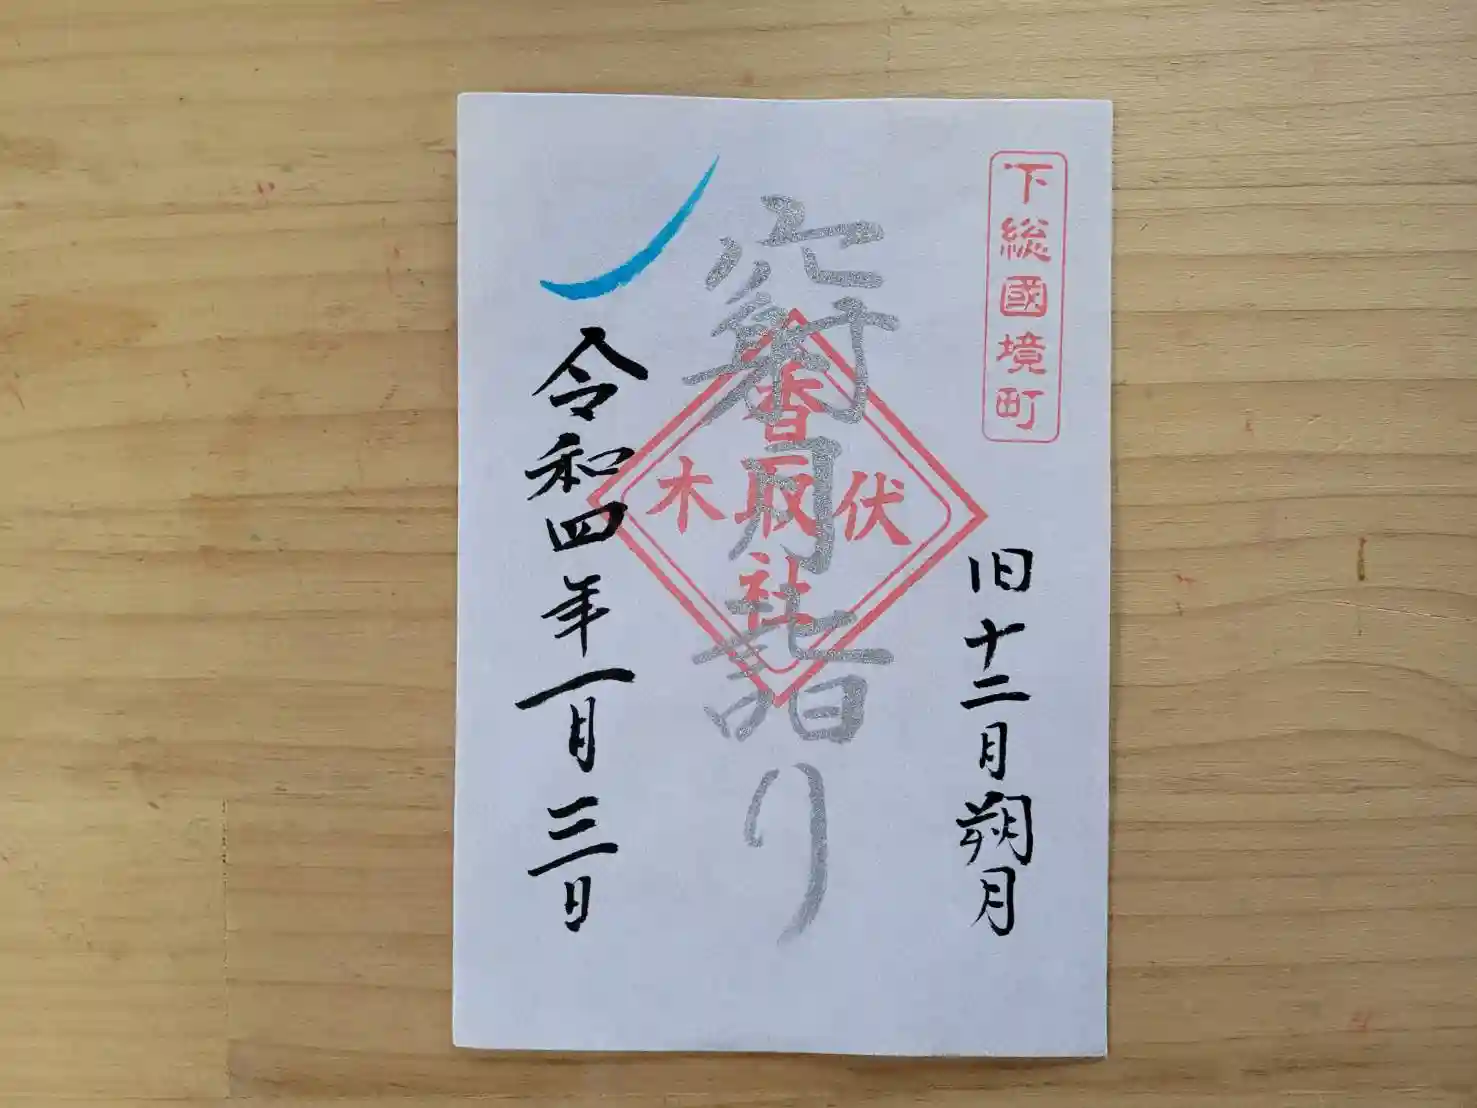 下総國境町
旧十二月朔月
窮月詣り
伏木
香取社
令和四年一月三日